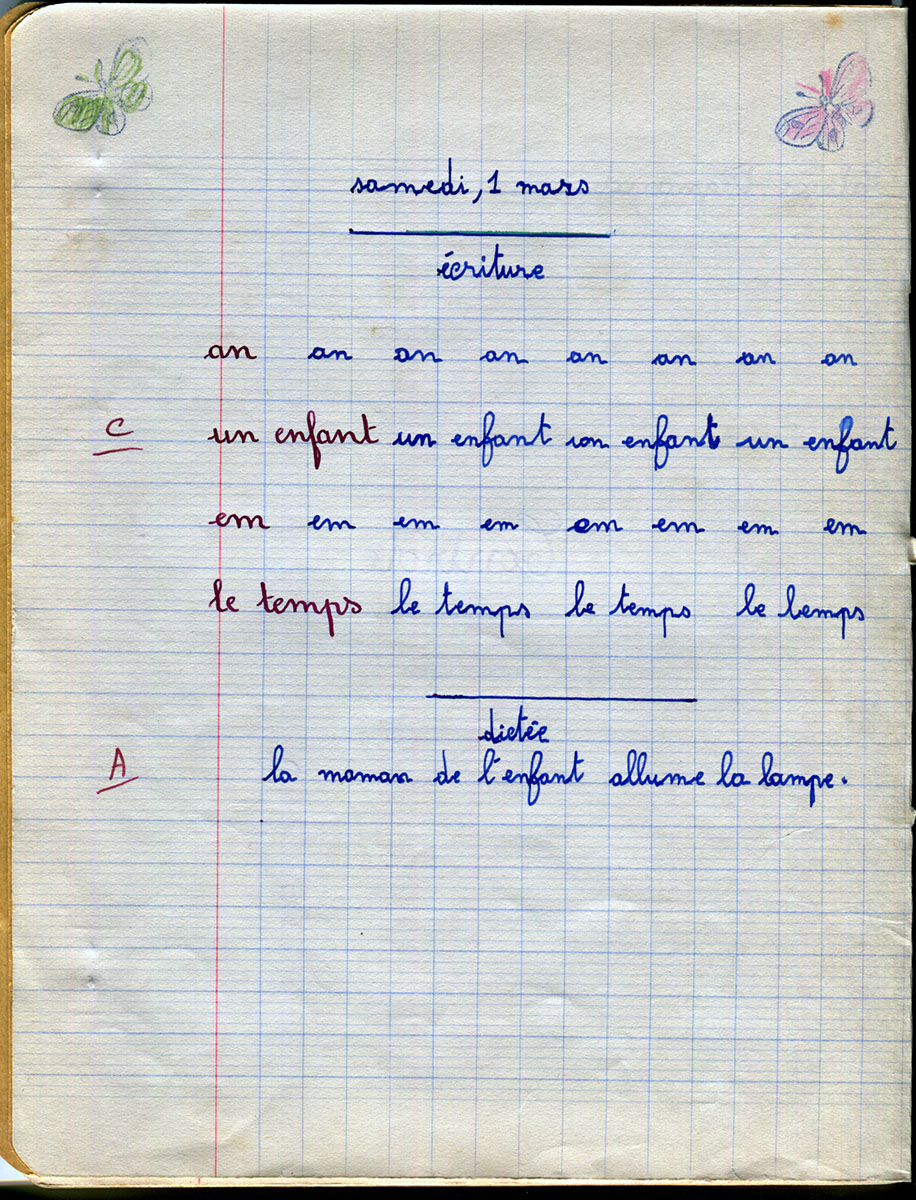 samedi, 1 mars
écriture
an an an an an an an an
C un enfant un enfant un enfant un enfant
em em em em em em em em
le temps le temps le temps le temps
dictée
A la maman de l'enfant allume la lampe.